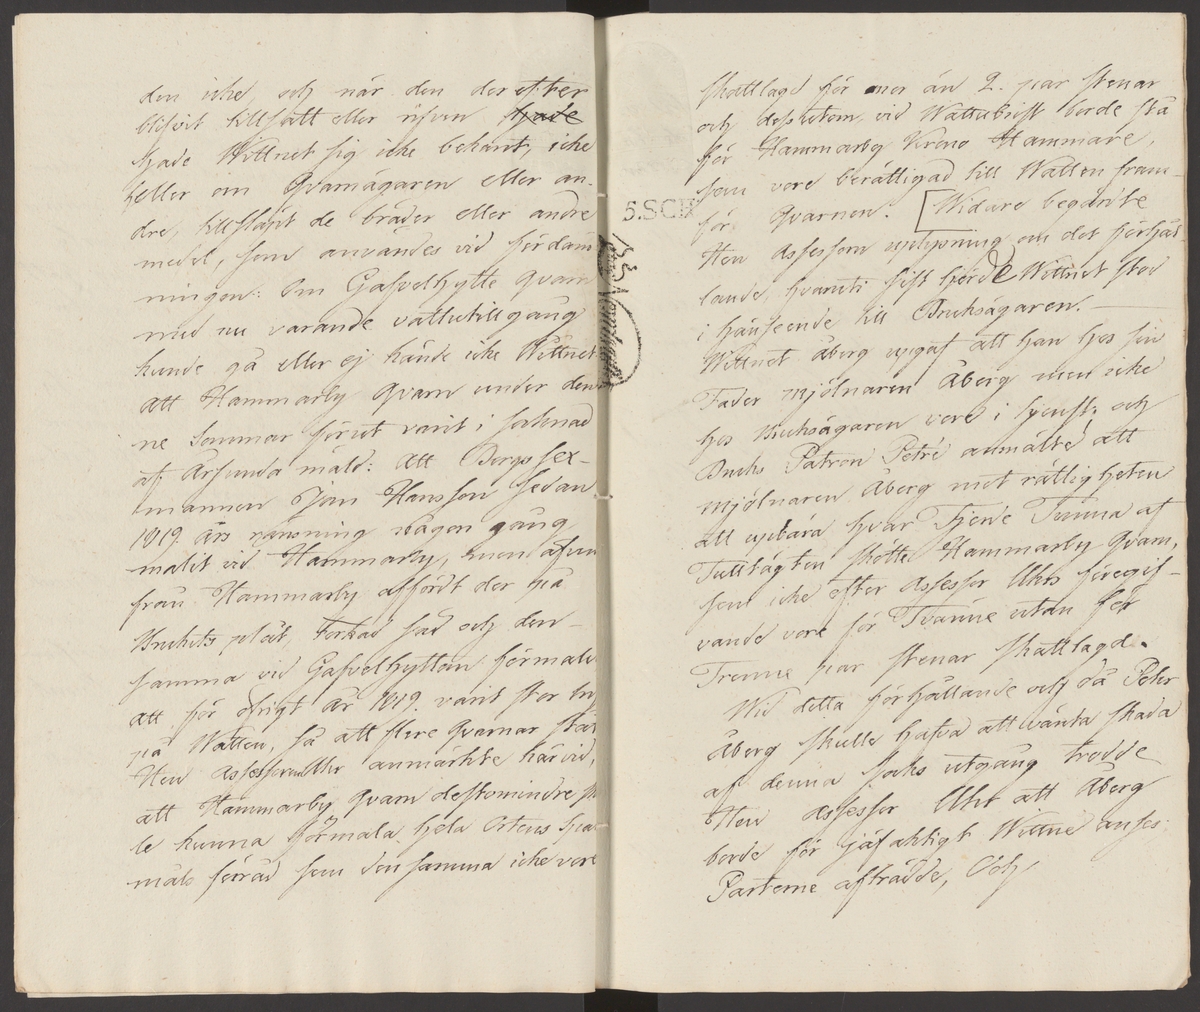 den icke, och när den derefter
blifvit tillsatt eller rifven hade
hade Wittnet sig icke bekant, icke
heller om Qvarnägaren eller an-
dre, tillsläpt de bräder eller andre
medel, som användes vid fördäm
ningen: Om Gafvelhytte Qvarn
med nu varande vattutillgång
kunde gå eller ej kände icke Wittnet
Att Hammarby Qvarn under den
ne Sommar förut varit i saknad
af Årsunda mäld: att Bergs sex-
mannen Jan Hansson sedan
1819 års ransning någon gång
malit vid Hammarby, men äfven
från Hammarby affördt der på
Brukets plåt, torkad säd och den-
samma vid Gafvelhyttan förmalt
att för öfrigt År 1819 varit stor bry
på Watten, så att flere Qvarnar stått
Herr Assessoren Uhr anmärkte härvid,
att Hammarby Qvarn destomindre
le kunna förmala hela Ortens
mäls förråd som densamma icke vore
skattlagd för mer än 2. par stenar
och dessutom, vid Wattubrist borde stå
för Hammarby Krono Hammare,
som vore berättigad till Watten fram-
för Qvarnen. [Widare begärte
Herr Assessorn upplysning om det förhål
lande, hvaruti sist hörde Wittnet stod
i hänseende till Bruksägaren.
Wittnet Åberg uppgaf att han hos sin
Fader mjölnaren Åberg men icke
hos Bruksägaren vore i tjenst, och
Bruks Patron Petré anmälte att
mjölnaren Åberg mot rättigheten
att uppbära hvar Fjerde Tunna af
Tulltägten skötte Hammarby Qvarn,
som icke efter Assessor Uhrs föregif-
vande vore för Tvänne utan för
Trenne par stenar skattlagd.
Wid detta förhållande och då Pehr
Åberg skulle hafva att vänta skada
af denna saks utgång trodde
Herr Assessor Uhr att Åberg
borde för jäfaktigt Wittne anses.
Parterne afträdde, Och
5.SCH